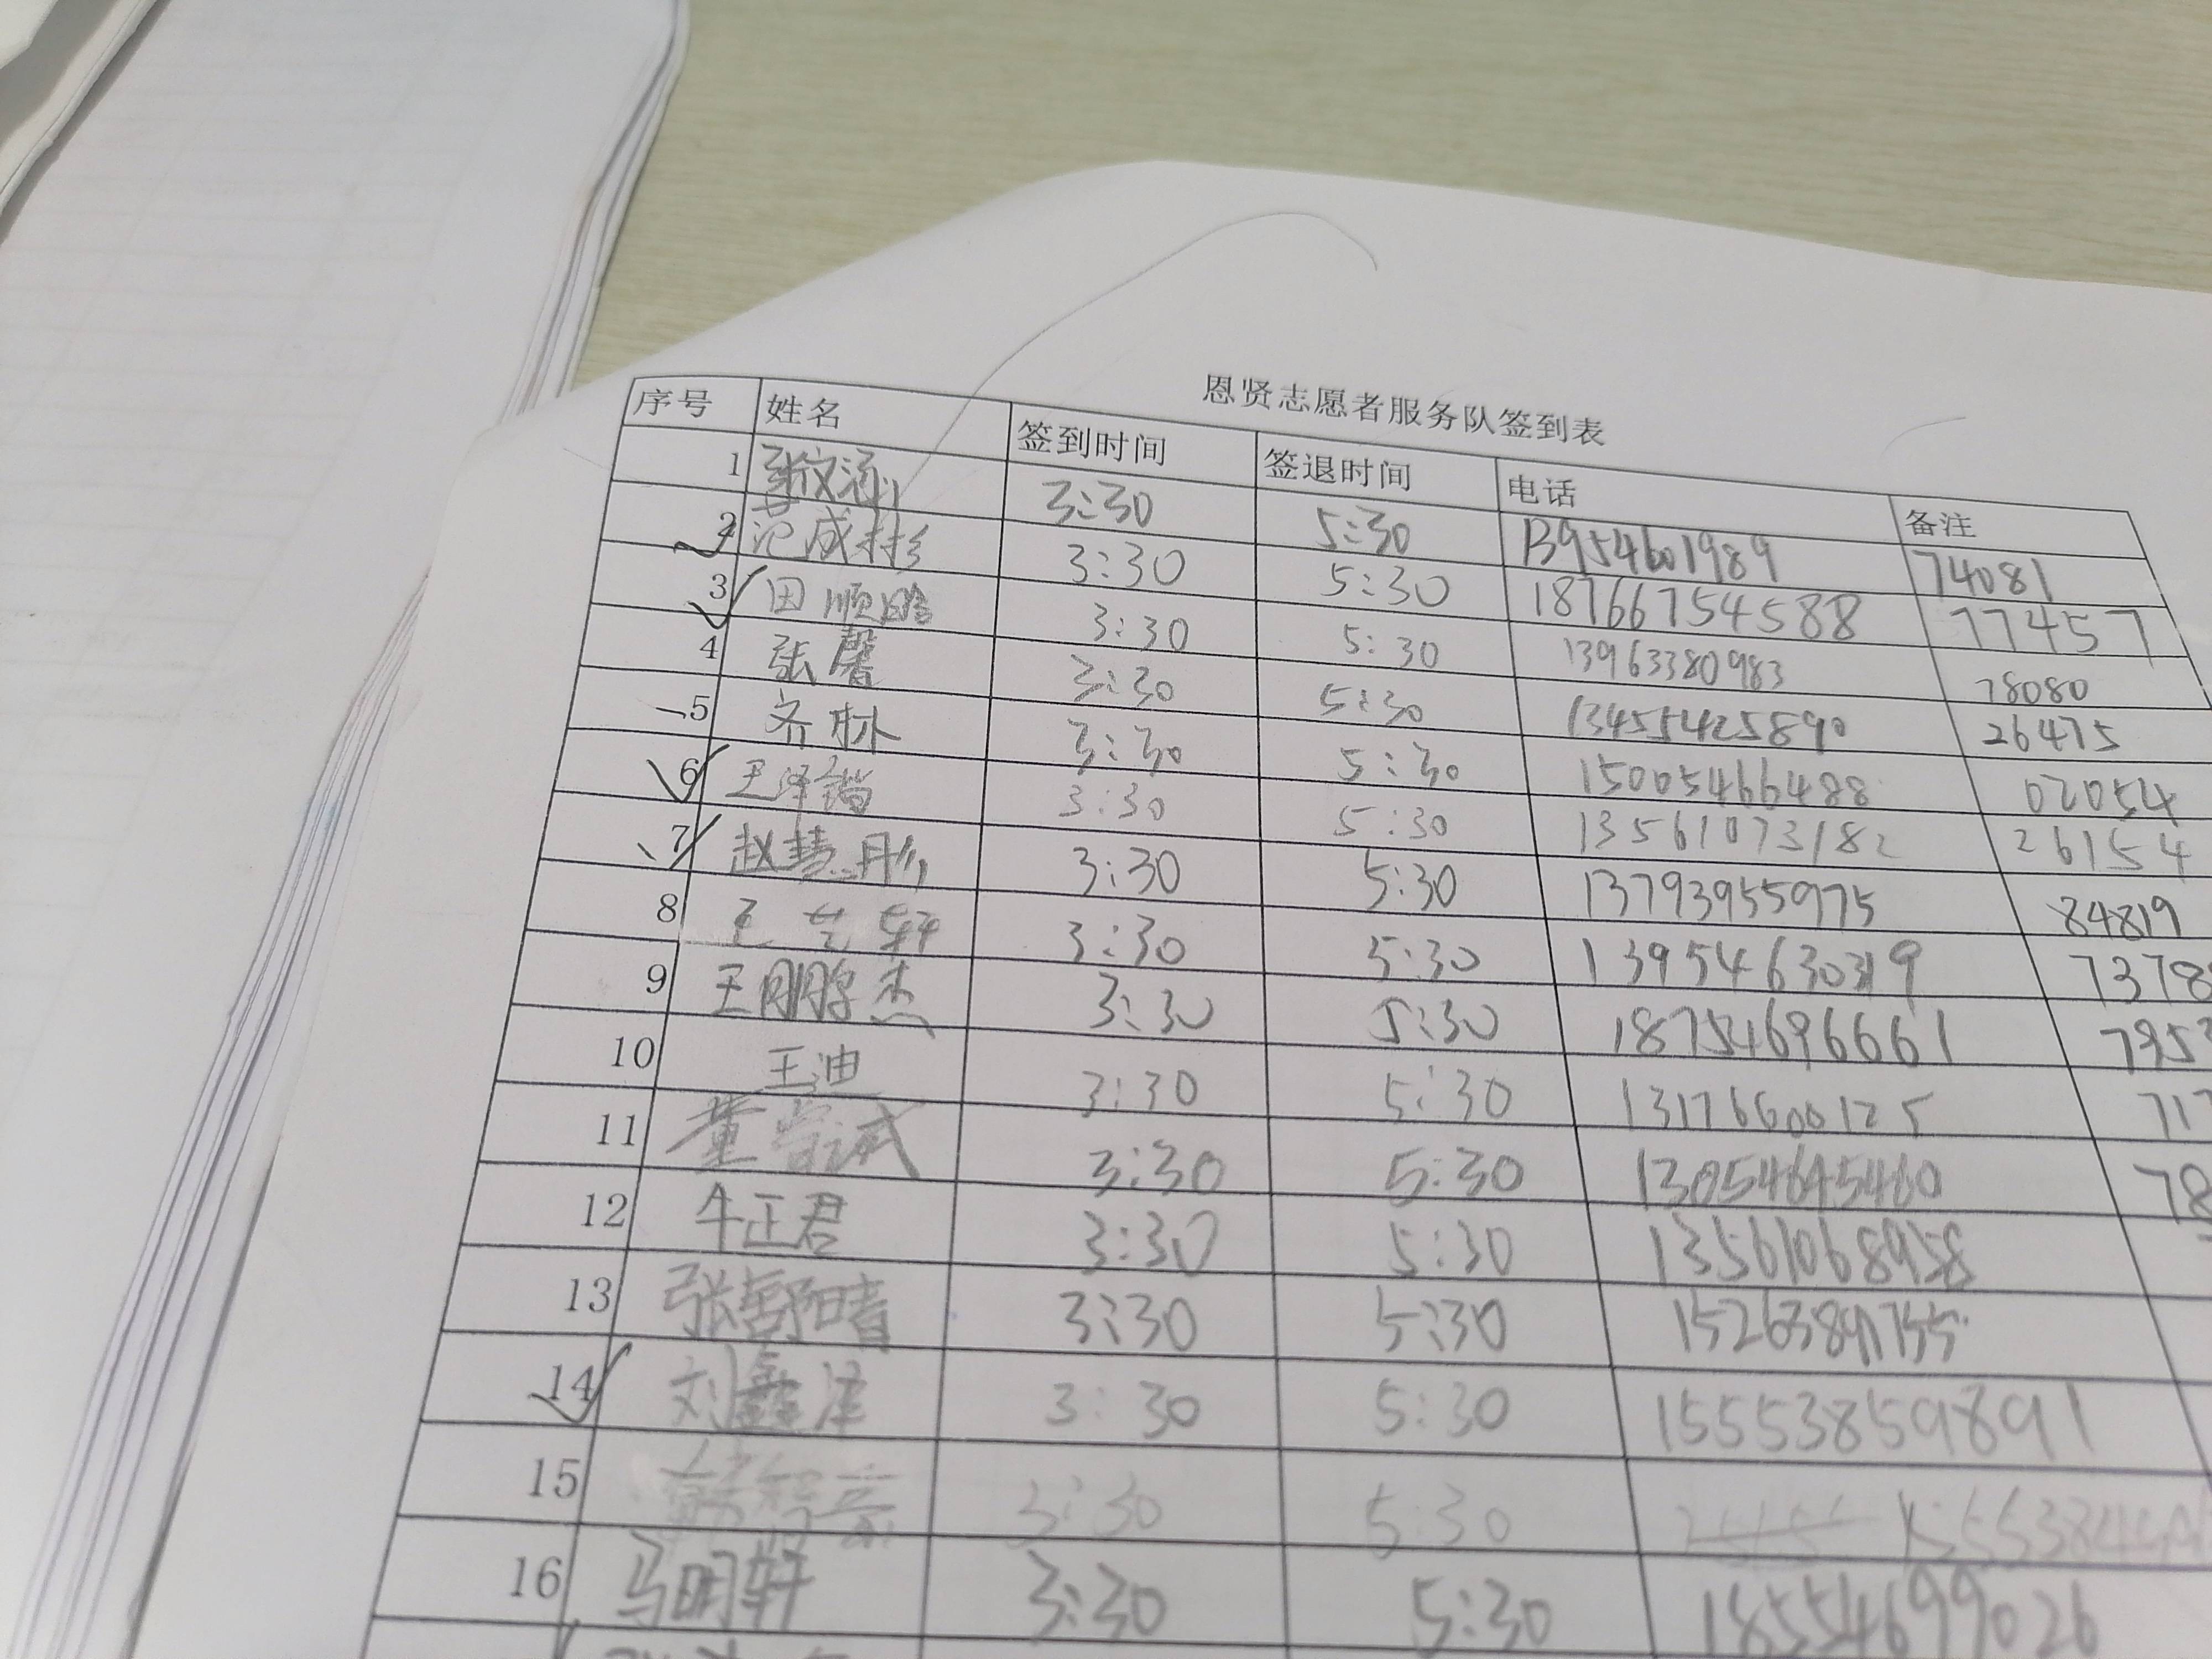 恩贤志愿者服务队签到表
序号 姓名 签到时间 签退时间 电话 备注
1 3:30 5:30 13954601989 74081
2 范成彬 3:30 5:30 18766754588 77457
3 田顺晗 3:30 5:30 13963380983 78080
4 张馨 3:30 5:30 13455425890 26475
5 齐林 3:30 5:30 15005466488 02054
6 王泽锴 3:30 5:30 13561073182 26154
7 赵慧彤 3:30 5:30 13793955975 84819
8 王艺轩 3:30 5:30 7378
9 王鹏杰 3:30 5:30 18754696661
10 王迪 3:30 5:30 13176600125 717
11 董尝试 3:30 5:30 13054645460 78
12 牛正君 3:30 5:30 13561068958
13 张舒阳 3:30 5:30
14 刘鑫洋 3:30 5:30 15553859891
15 3:30 5:30
16 马明轩 3:30 5:30 18554699026